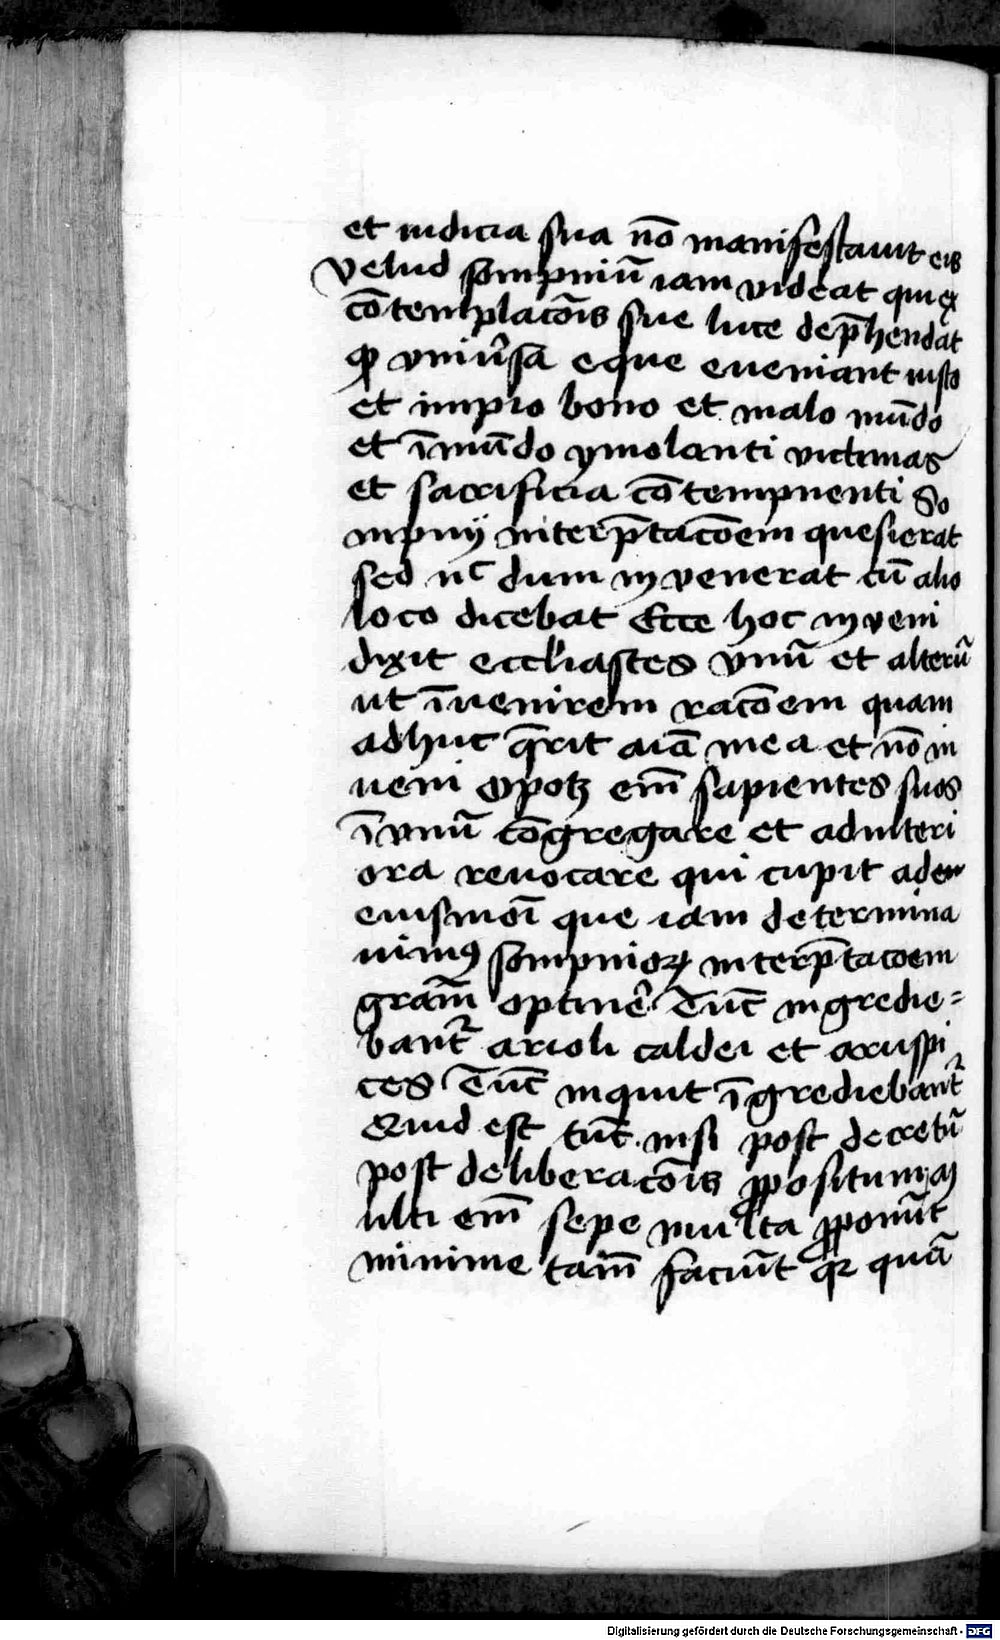 et iudicia sua nō manifestauit eis
Velud sompniū iam videat qui ex
cōtemplacōis sue luce dep̄hendat
qd vniūsa eque eueniant iusto
et impio bono et malo mūdo
et īmūdo ymolanti victimas
et sacrificia cōtempnenti So
mpnij interp̄tacōem quesierat
sed nc dum invenerat cū alio
loco dicebat Ecce hoc inveni
dixit eccl'iastes vnū et alterū
ut īuenirem racōem quam
adhuc q̄rit aīa mea et nō in
ueni Opotꝫ em̄ sapientes suos
ī vnū cōgregare et ad interi
ora reuocare qui cupit ad
eiusmōi que iam determina
uimꝯ sompnioꝝ interp̄tacoem
gram̄ optinē Tūc ingredie=
bantᷣ arioli caldei et aruspi
ces Tūc inquit īgrediebantᷣ
Quid est tūc nisi post decretū
post deliberacōis ꝓpositum M
ulti em̄ sepe multa ꝓponūt
minime tam̄ faciūt qꝛ quā
Digitalisierung gefördert durch die Deutsche Forschungsgemeinschaft - DFG